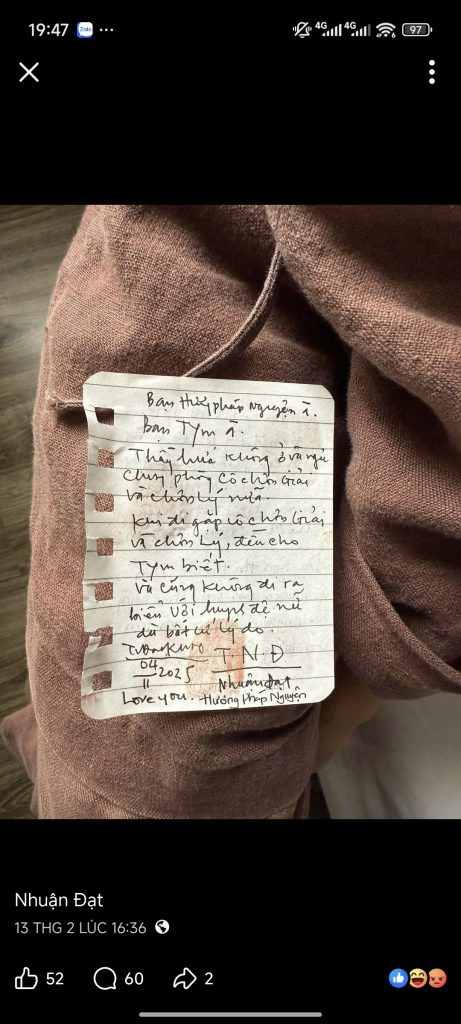 19:47 Zalo ... 4G 4G 97
Bạn Hương pháp Nguyện à.
Bạn Tym à.
Thầy hứa không ở và ngủ
chung phòng cô chơn Giải
và chơn Lý nữa.
Khi đi gặp cô chơn Giải
và chơn Lý, đều cho
Tym biết.
và cũng không đi ra
biển với huynh đệ nữ
dù bất cứ lý do.
04
11 2025
T N Đ
Nhuận Đạt
Love you. Hương Pháp Nguyện
Nhuận Đạt
13 THG 2 LÚC 16:36
52 60 2